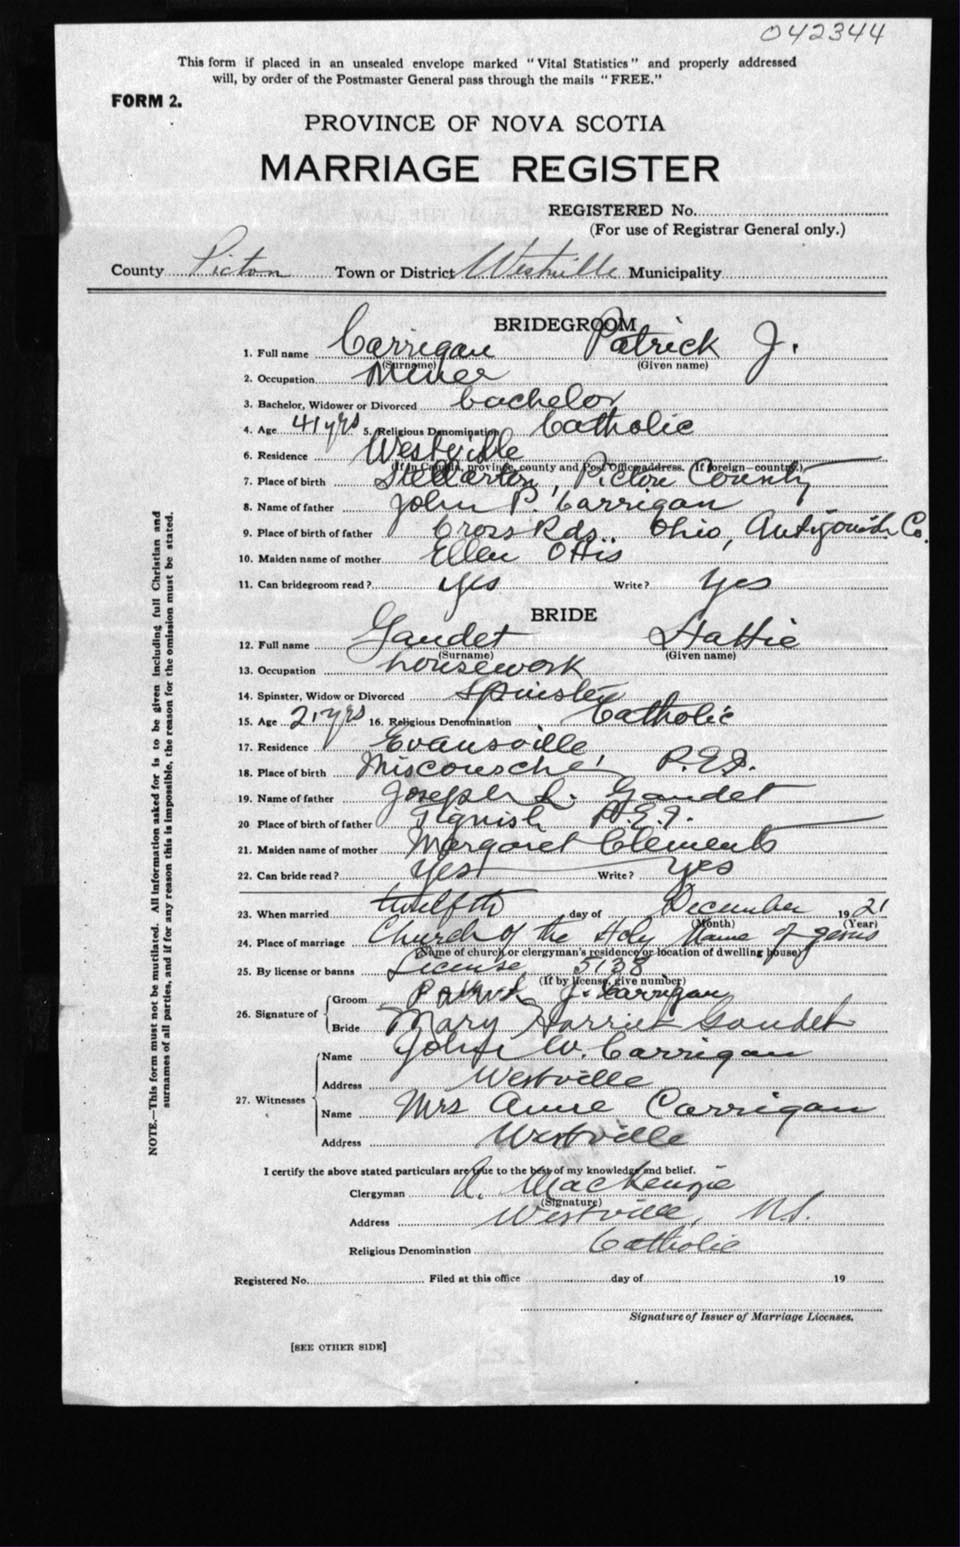 042344
This form if placed in an unsealed envelope marked "Vital Statistics" and properly addressed
will, by order of the Postmaster General pass through the mails "FREE."
FORM 2.
PROVINCE OF NOVA SCOTIA
MARRIAGE REGISTER
REGISTERED No.
(For use of Registrar General only.)
County Picton Town or District Westville Municipality
BRIDEGROOM
1. Full name Carrigan Patrick J.
(Surname) (Given name)
2. Occupation Miner
3. Bachelor, Widower or Divorced bachelor
4. Age 41 yrs 5. Religious Denomination Catholic
6. Residence Westville
(If in Canada, province, county and Post Office address. If foreign—country.)
7. Place of birth Stellarton, Pictou County
8. Name of father John P. Carrigan
9. Place of birth of father Cross Rds. Ohio, Antigonish Co.
10. Maiden name of mother Ellen Ottis
11. Can bridegroom read? yes Write? yes
BRIDE
12. Full name Gaudet Hattie
(Surname) (Given name)
13. Occupation housework
14. Spinster, Widow or Divorced Spinster
15. Age 21 yrs 16. Religious Denomination Catholic
17. Residence Evansville
18. Place of birth Miscousche, P.E.I.
19. Name of father Joseph L. Gaudet
20 Place of birth of father Tignish P.E.I.
21. Maiden name of mother Margaret Clements
22. Can bride read? Yes Write? yes
23. When married twelfth day of December 1921
(Month) (Year)
24. Place of marriage Church of the Holy Name of Jesus
(Name of church or clergyman's residence or location of dwelling house)
25. By license or banns License 5138
(If by license, give number)
26. Signature of Groom Patrick J. Carrigan
Bride Mary Harriet Gaudet
27. Witnesses Name John W. Carrigan
Address Westville
Name Mrs Anne Carrigan
Address Westville
I certify the above stated particulars are true to the best of my knowledge and belief.
Clergyman R. MacKenzie
(Signature)
Address Westville, N.S.
Religious Denomination Catholic
Registered No. Filed at this office day of 19
Signature of Issuer of Marriage Licenses.
[SEE OTHER SIDE]
NOTE.—This form must not be mutilated. All information asked for is to be given including full Christian and
surnames of all parties, and if for any reason this is impossible, the reason for the omission must be stated.